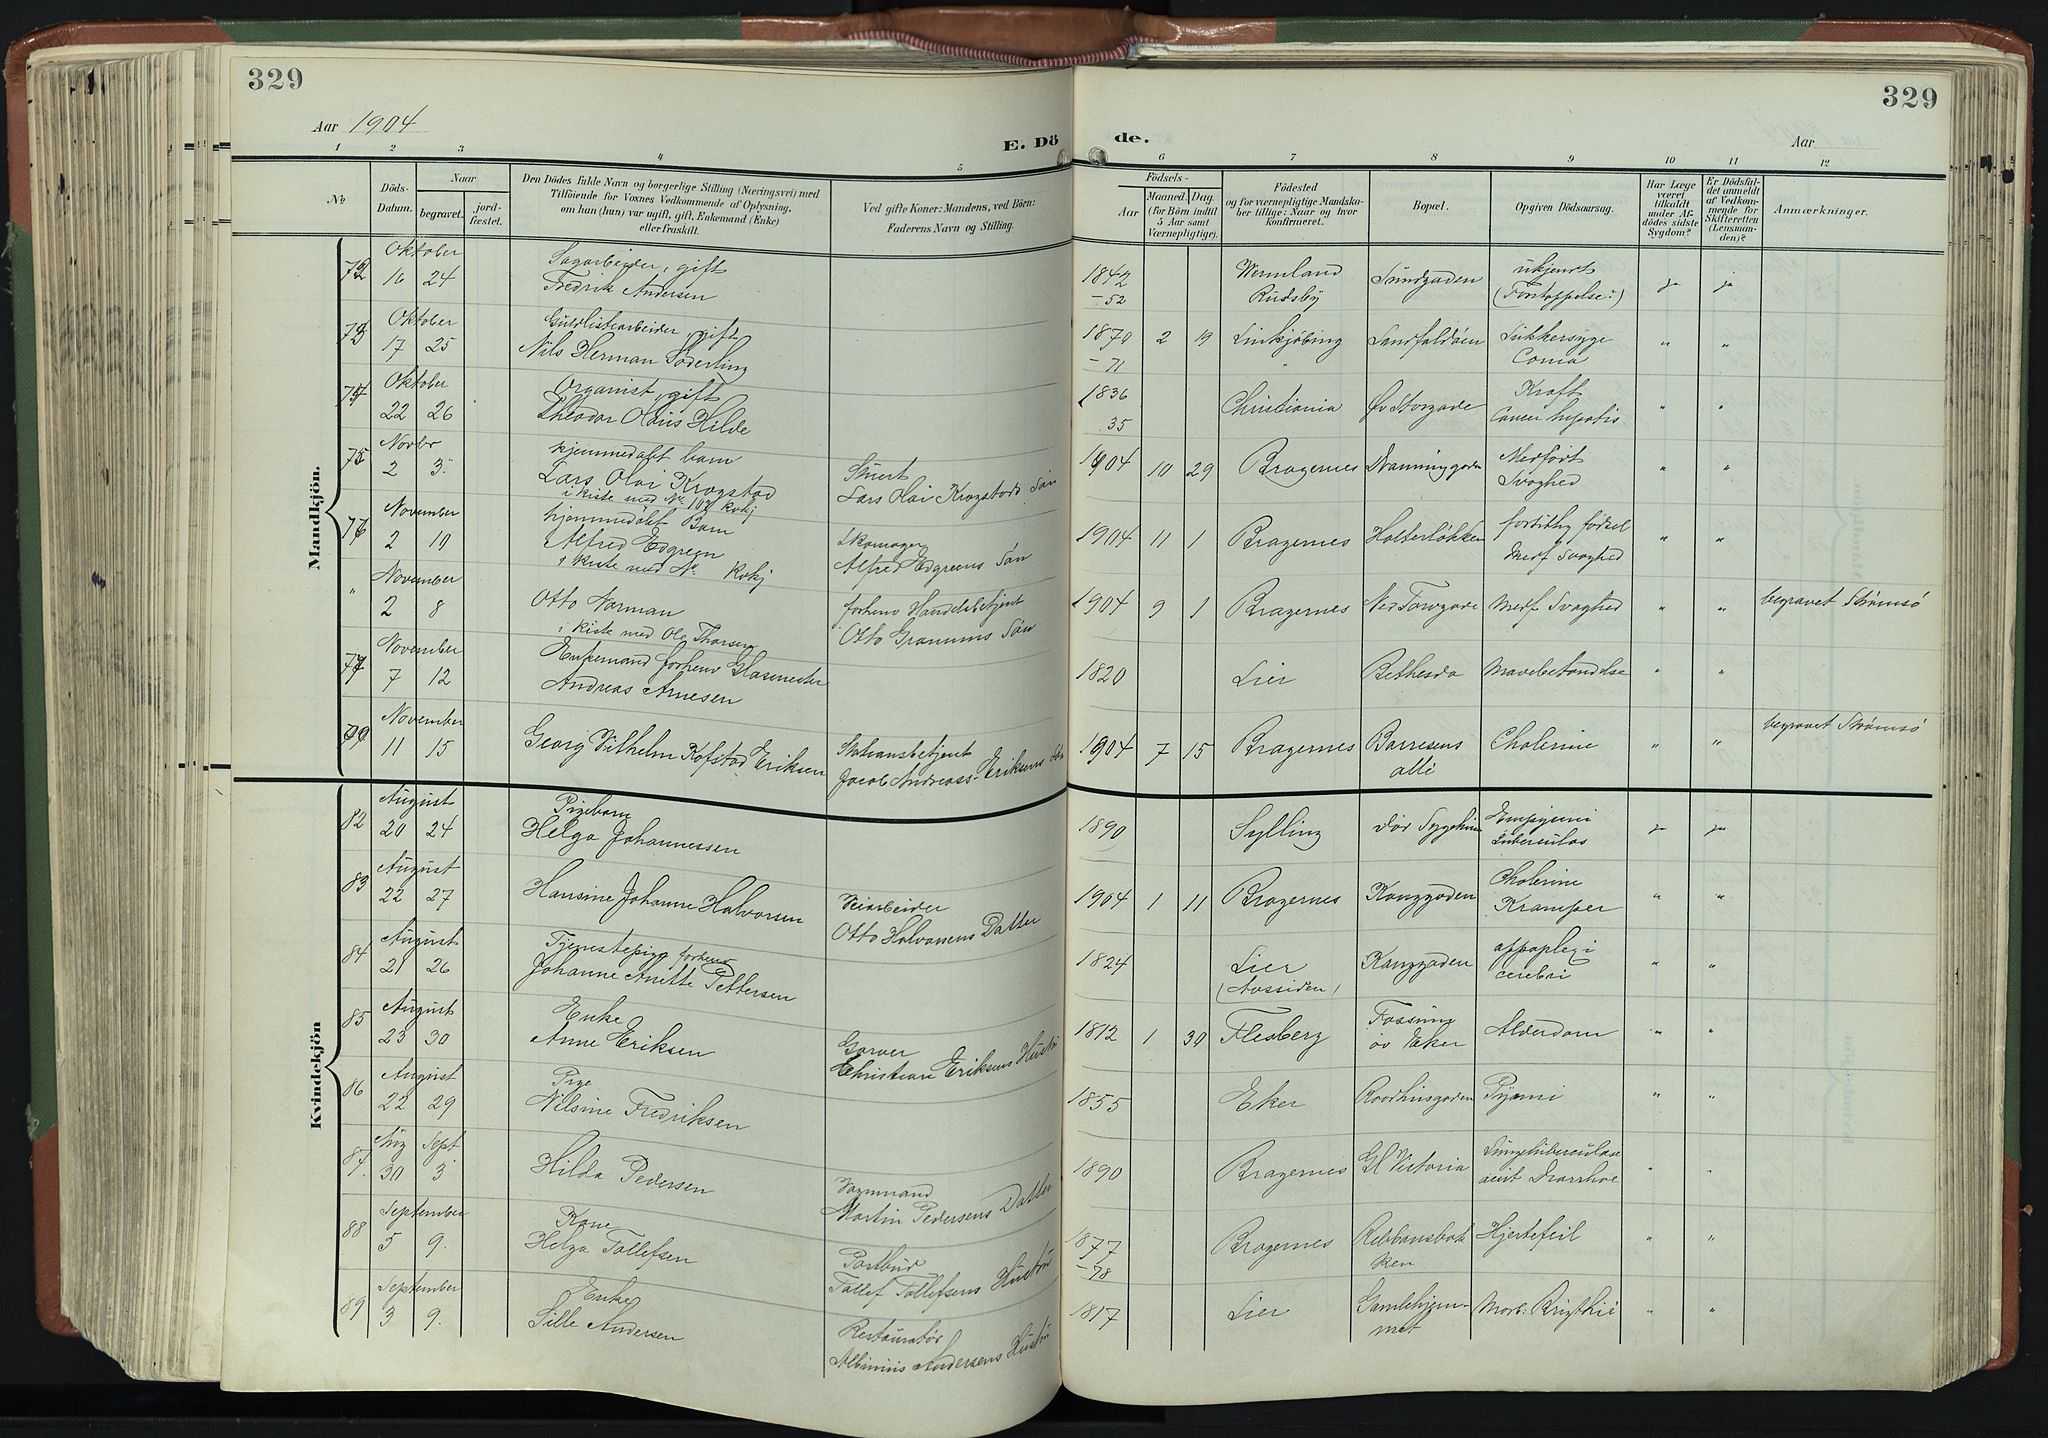 329
329
Aar 1904
Aar
E. Dö
de.
1 2 3 4 5 6 7 8 9 10 11 12
No
Döds-
Datum.
Naar
begravet.
jord-
fæstet.
Den Dödes fulde Navn og borgerlige Stilling (Næringsvei) med
Tilföiende for Voxnes Vedkommende af Oplysning,
om han (hun) var ugift, gift, Enkemand (Enke)
eller fraskilt.
Ved gifte Koner: Mandens, ved Börn:
Faderens Navn og Stilling.
Födsels-
Aar
Maaned. Dag.
(for Börn indtil
5 Aar samt
Værnepligtige).
Födested
og for værnepligtige Mandska-
ber tillige: Naar og hvor
konfirmeret.
Bopæl.
Opgiven Dödsaarsag.
Har Læge
været
tilkaldt
under Af-
dödes sidste
Sygdom?
Er Dödsfal-
det anmeldt
af Vedkom-
mende for
Skifteretten
(Lensman-
den)?
Anmærkninger.
Mandkjön.
Oktober Sagarbeider, gift 1842 Wermland ukjendt
16 24 Fredrik Andersen -52 Rudsby (Forstoppelse?) ja ja
Oktober Guldlistearbeider, gift 1870 2 19 Linkjöbing Landfaldøen Sukkersyge " "
17 25 Nils Herman Söderling -71 Coma
Oktober Organist, gift 1836 Kræft
22 26 Theodor Olaus Hilde 35 Christiania Øv Storgade Cancer hepatis " "
75 Novbr hjemmedøbt barn Medfødt
2 3. Lars Olai Krogstad 1904 10 29 Bragernes Svaghed " "
i kiste med No 107 Kvkj Lars Olai Krogstads Søn
76 November hjemmedøbt Barn Skomager 1904 11 1 Bragernes Holterløkken fortidlig fødsel
2 10 Alfred Edgreen Alfred Edgreens Søn Medf Svaghed " "
i kiste med No Kvkj
" November
2 8 Otto Narman forhenv Handelsbetjent 1904 9 1 Bragernes Ned Torvgade Medf Svaghed " " begravet Strømsø
i kiste med Ole Thorsen Otto Granums Søn
77 November Enkemand forhenv Glasmester
7 12 Andreas Arnesen 1820 Lier Bethesda Mavebetændelse " "
November
11 15 Georg Vilhelm Kofstad Eriksen Stationsbetjent 1904 7 15 Bragernes Børresens Cholerine " " begravet Strømsø
Jacob Andreass Eriksens Søn alle
Kvindekjön
82 August Pigebarn
20 24 Helga Johannessen 1890 Sylling Empyemi ja ja
tuberculos
83 August
22 27 Hansine Johanne Halvorsen Veiarbeider 1904 1 11 Bragernes Kongsgaden Cholerine " "
Otto Halvorsens Datter Kramper
84 August Tjenestepige forhenv
21 26 Johanne Anette Pettersen 1824 Lier Kongsgaden appoplexi " "
(Aassiden) cerebri
85 August Enke
23 30 Anne Eriksen Garver 1812 1 30 Flesberg Fossum Alderdom " "
Christian Eriksens Hustru øv Eker
86 August Pige
22 29 Nilsine Fredriksen 1855 Eker Raadhusgaden Pyæmi " "
87. Aug Sept
30 3 Hilda Pedersen Vognmand 1890 Bragernes Gl Victoria Lungetuberculose " "
Martin Pedersens Datter
88 September Kone
5 9. Helga Tollefsen Postbud 1877 Bragernes Hjertefeil " "
Tollef Tollefsens Hustru -78
89 September Enke
3 9. Sille Andersen Restauratør 1817 Lier Gamlehjem- Morb. Brigthii " "
Albinius Andersens Hustru met